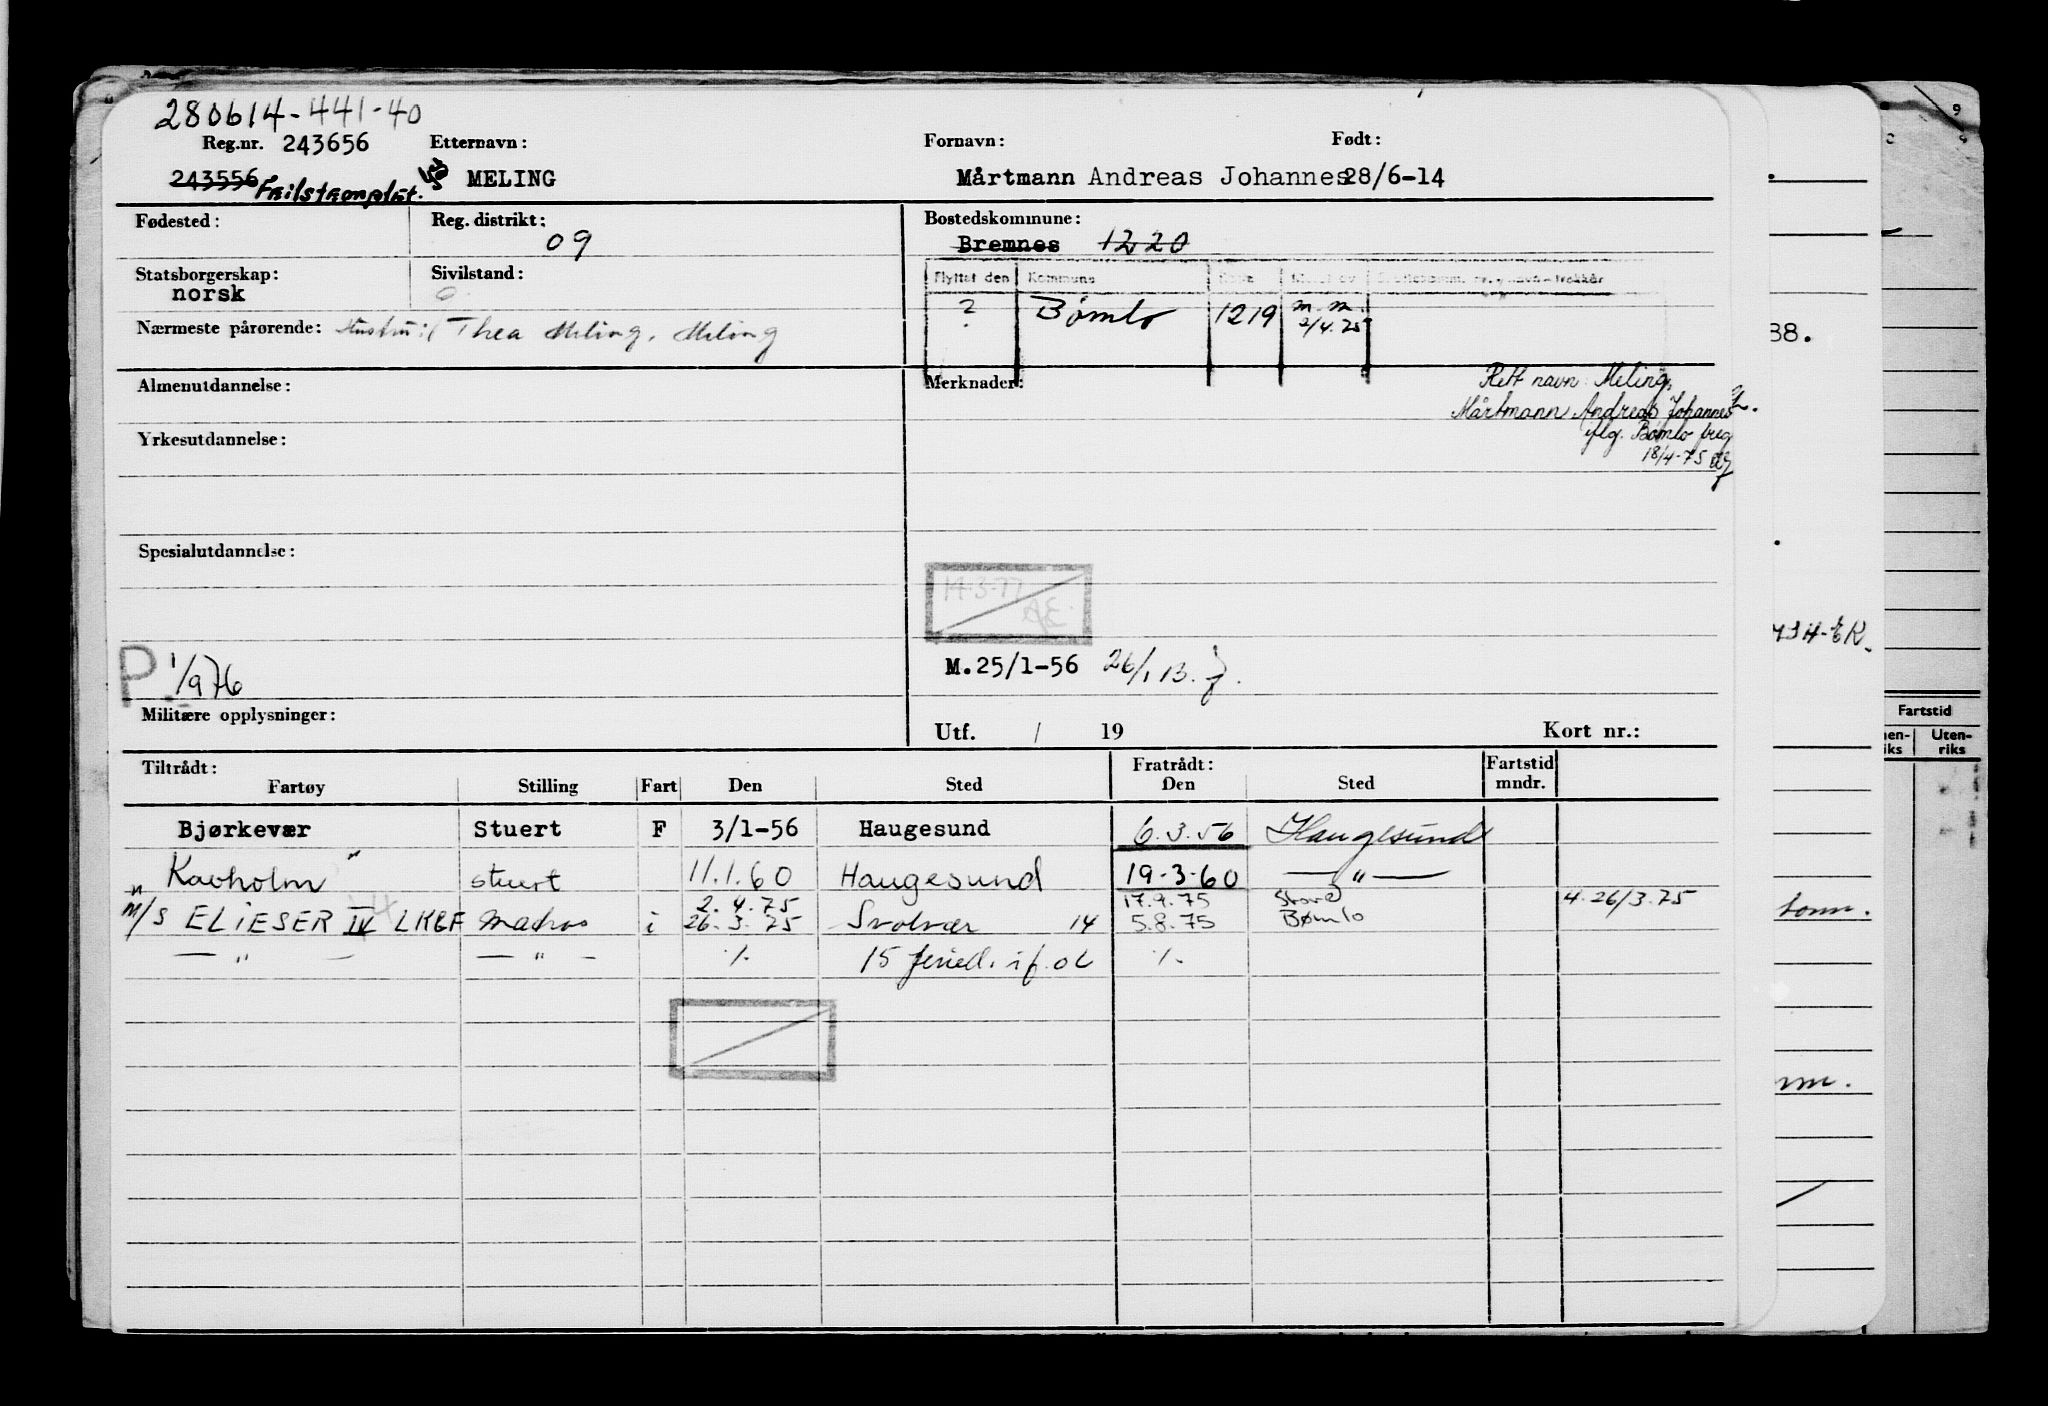 280614-441-40
Reg.nr. 243656 Etternavn: Fornavn: Født:
243556 Feilstemplet. MELING Mårtmann Andreas Johannes 28/6-14
Fødested: Reg. distrikt: 09 Bostedskommune:
Bremnes 1220
Statsborgerskap: Sivilstand:
norsk
Flyttet den Kommune
? Bømlo 1219 m.m.
2/4.75
Nærmeste pårørende: Hustru: Thea Meling, Meling
Almenutdannelse: Merknader: Rett navn: Meling,
Mårtmann Andreas Johannes
iflg. Bømlo freg
18/4-75
Yrkesutdannelse:
Spesialutdannelse:
14.3.77
AE.
P 1/976
M.25/1-56 26/1 B.
Militære opplysninger:
Utf. / 19 Kort nr.:
Tiltrådt: Fratrådt: Fartstid
Fartøy Stilling Fart Den Sted Den Sted mndr.
Bjørkevær Stuert F 3/1-56 Haugesund 6.3.56 Haugesund
"Kavholm" stuert 11.1.60 Haugesund 19-3-60 — " —
2.4.75 17.9.75 Stord
M/S ELIESER IV LKBF Matros i 26.3.75 Svolvær 14 5.8.75 Bømlo 4.26/3.75
— " — — " — ./. 15 feried. if. ok ./.
9
38.
H-EK.
Fartstid
Uten-
riks
tonn.